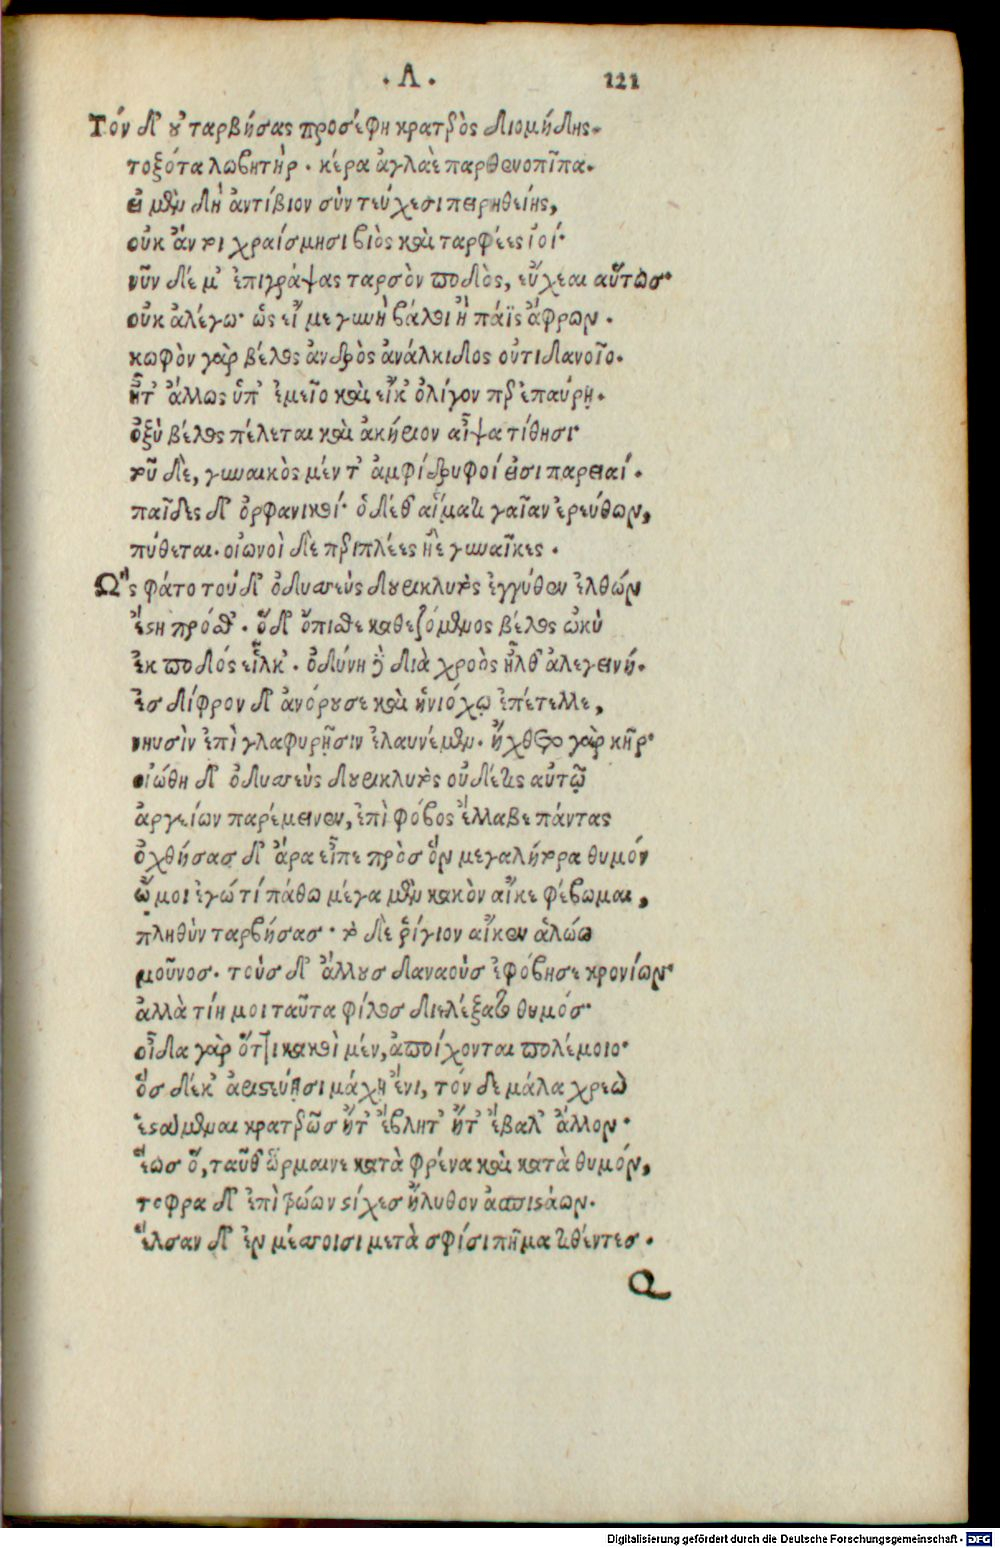 · Λ · 121
Τόν δ' οὐ ταρβήσας προσέφη κρατερὸς διομήδης.
τοξότα λωβητὴρ. κέρα ἀγλαὲ παρθενοπῖπα.
εἰ μὲν δὴ ἀντίβιον σὺν τεύχεσι πειρηθείης,
οὐκ ἄν τι χραίσμησι βιὸς καὶ ταρφέες ἰοί·
νῦν δέ μ' ἐπιγράψας ταρσὸν ποδὸς, εὔχεαι αὔτως·
οὐκ ἀλέγω· ὡς εἴ με γυνὴ βάλοι ἢ πάϊς ἄφρων.
κωφὸν γὰρ βέλος ἀνδρὸς ἀνάλκιδος οὐτιδανοῖο.
ἦτ' ἄλλως ὑπ' ἐμεῖο καὶ εἴκ' ὀλίγον περ ἐπαύρῃ.
ὀξὺ βέλος πέλεται καὶ ἀκήριον αἶψα τίθησι·
τοῦ δὲ, γυναικὸς μέν τ' ἀμφίδρυφοί εἰσι παρειαί.
παῖδες δ' ὀρφανικοί· ὁ δέθ' αἵματι γαῖαν ἐρεύθων,
πύθεται. οἰωνοὶ δὲ περὶ πλέες ἠὲ γυναῖκες.
Ὣς φάτο τοῦ δ' ὀδυσσεὺς δουρικλυτὸς ἐγγύθεν ἐλθών
ἔστη πρόσθ'. ὅ δ' ὄπισθε καθεζόμενος βέλος ὠκὺ
ἐκ ποδός εἷλκ'. ὀδύνη δὲ διὰ χροὸς ἦλθ' ἀλεγεινή.
ἐσ δίφρον δ' ἀνόρουσε καὶ ἡνιόχῳ ἐπέτελλε,
νηυσὶν ἐπὶ γλαφυρῇσιν ἐλαυνέμεν. ἤχθετο γὰρ κῆρ·
οἰώθη δ' ὀδυσσεὺς δουρικλυτὸς οὐδέτις αὐτῷ
ἀργείων παρέμεινεν, ἐπὶ φόβος ἔλλαβε πάντας
ὀχθήσασ δ' ἄρα εἶπε πρὸσ ὅν μεγαλήτορα θυμόν
ὤ μοι ἐγώ τί πάθω μέγα μὲν κακὸν αἴκε φέβωμαι,
πληθὺν ταρβήσας· τὸ δὲ ῥίγιον αἴκεν ἁλώω
μοῦνοσ. τοὺσ δ' ἄλλουσ δαναοὺσ ἐφόβησε κρονίων·
ἀλλὰ τίη μοι ταῦτα φίλοσ διελέξατο θυμόσ·
οἶδα γὰρ ὅττι κακοὶ μέν, ἀποίχονται πολέμοιο·
ὅσ δέκ' ἀριστεύῃσι μάχῃ ἔνι, τόν δε μάλα χρεὼ
ἑστάμεναι κρατερῶσ ἤτ' ἔβλητ' ἤτ' ἔβαλ' ἄλλον·
ἕωσ ὅ, ταῦθ' ὥρμαινε κατὰ φρένα καὶ κατὰ θυμόν,
τοφρα δ' ἐπὶ τρώων στίχεσ ἤλυθον ἀσπιστάων.
ἔλσαν δ' ἐν μέσσοισι μετὰ σφίσι πῆμα τιθέντεσ.
Q
Digitalisierung gefördert durch die Deutsche Forschungsgemeinschaft · DFG